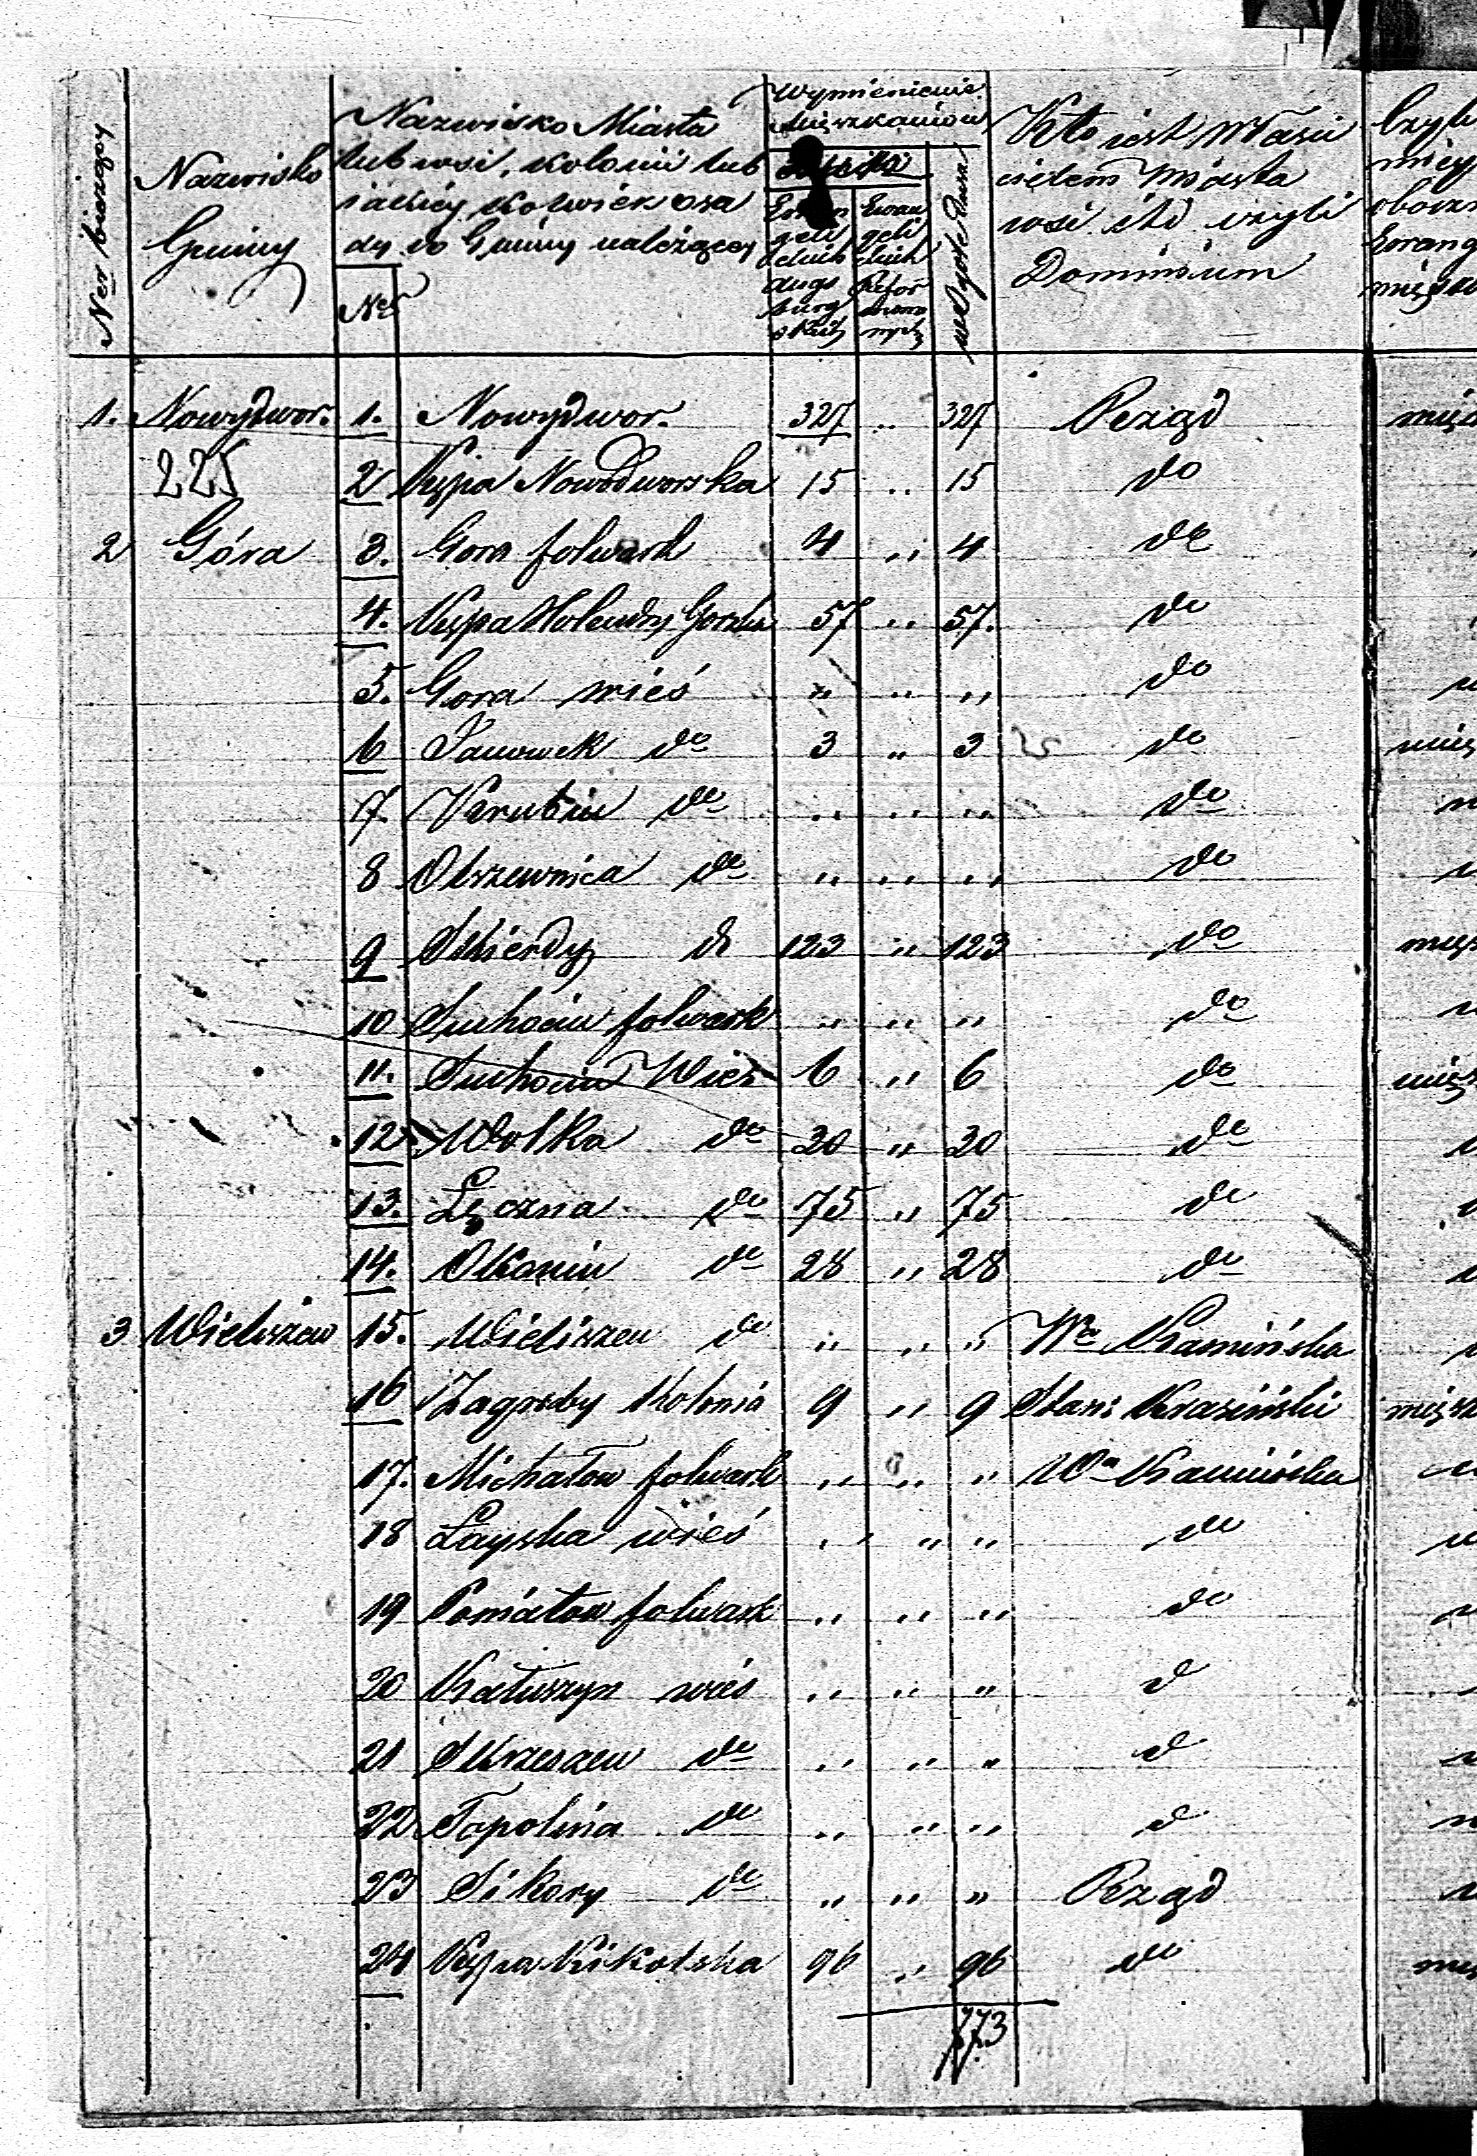 Ner bieżący
Nazwisko
Gminy
Nazwisko Miasta
lub wsi, kolonii lub
jakiey kolwiek osa
dy do Gminy należącey
Ner
Wymienienie
Mieszkańców
Ewan
geli
ckich
augs
burg
skich
Ewan
geli
ckich
Refor
mowa
nych
w Ogóle Dusz
Kto iest Właści
cielem Miasta
wsi itd czyli
Dominium
Czyli
Ewang
1. Nowydwor. 1. Nowydwor. 327 " 327 Rząd
225 2 Kępa Nowodworska 15 " 15 do
2 Góra 3. Gora folwark 4 " 4 do
4. Kępa Holendry Gorska 57 " 57. do
5. Gora wieś " " " do
6 Janowek do 3 " 3 do
7. Krubin do " " " do
8 Olszewnica do " " " do
9 Skierdy do 123 " 123 do
10 Suchocin folwark " " " do
11. Suchocin Wieś 6 " 6 do
12 Wolka do 30 " 30 do
13. Łęczna do 75 " 75 do
14. Okonin do 28 " 28 do
3 Wieliszew 15. Wieliszew do " " " Wa Kamińska
16 Zagroby Kolonia 9 " 9 Stani Krasiński
17. Michałow folwark " " " Wa Kamińska
18 Łayska wieś " " " do
19 Poniatow folwark " " " do
20 Kałuszyn wieś " " " do
21 Skrzeszew do " " " do
22 Topolina do " " " do
23 Sikory do " " " Rząd
24 Kępa Kikolska 96 " 96 do
773